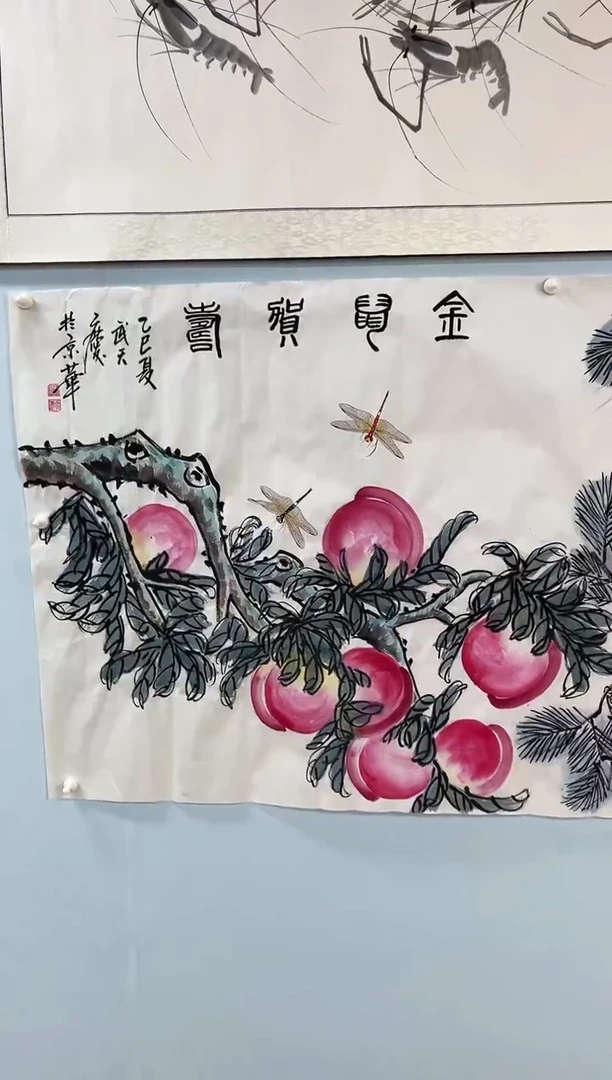 金鼠賀壽
乙巳夏
武天
慶
於京華